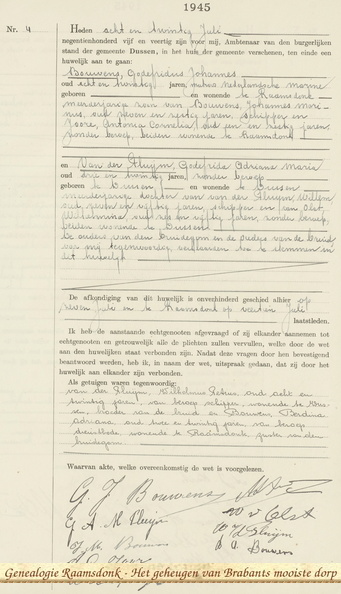 1945
Nr. 4
Heden acht en twintig Juli
negentienhonderd vijf en veertig zijn voor mij, Ambtenaar van den burgerlijken
stand der gemeente Dussen, in het huis der gemeente verschenen, ten einde een
huwelijk aan te gaan:
Bouwens, Godefridus Johannes
oud acht en twintig jaren, matroos nederlandsche marine
geboren en wonende te Raamsdonk
meerderjarige zoon van Bouwens, Johannes
oud en zestig jaren, schipper en
Antonia Cornelia, oud een en zestig jaren,
zonder beroep, beiden wonende te Raamsdonk
en Van der Pluijm, Godefrida Adriana Maria
oud drie en twintig jaren, zonder beroep,
geboren te Dussen en wonende te Dussen
minderjarige dochter van van der Pluijm, Willem
oud zeven en vijftig jaren, schipper en van Olst,
Wilhelmina, oud zes en vijftig jaren, zonder beroep,
beiden wonende te Dussen
De ouders van den bruidegom en de ouders van de bruid
mij tegenwoordig, verklaarden toe te stemmen in
dit huwelijk
De afkondiging van dit huwelijk is onverhinderd geschied alhier op
zeven Juli en te Raamsdonk op veertien Juli
laatstleden.
Ik heb de aanstaande echtgenooten afgevraagd of zij elkander aannemen tot
echtgenooten en getrouwelijk alle de plichten zullen vervullen, welke door de wet
aan den huwelijken staat verbonden zijn. Nadat deze vragen door hen bevestigend
beantwoord werden, heb ik, in naam der wet, uitspraak gedaan, dat zij door het
huwelijk aan elkander zijn verbonden.
Als getuigen waren tegenwoordig:
van der Pluijm, Wilhelmus Petrus, oud acht en
twintig jaren, van beroep schipper, wonende te Dus-
sen, broeder van de bruid en Bouwens, Berdina
Adriana, oud twee en twintig jaren, van beroep
dienstbode, wonende te Raamsdonk, zuster van den
bruidegom
Waarvan akte, welke overeenkomstig de wet is voorgelezen.
G. J Bouwens
G A M Pluijm
W v Olst
Pluijm
J. M. Bouwens
B. A. Bouwens
Genealogie Raamsdonk - Het geheugen van Brabants mooiste dorp